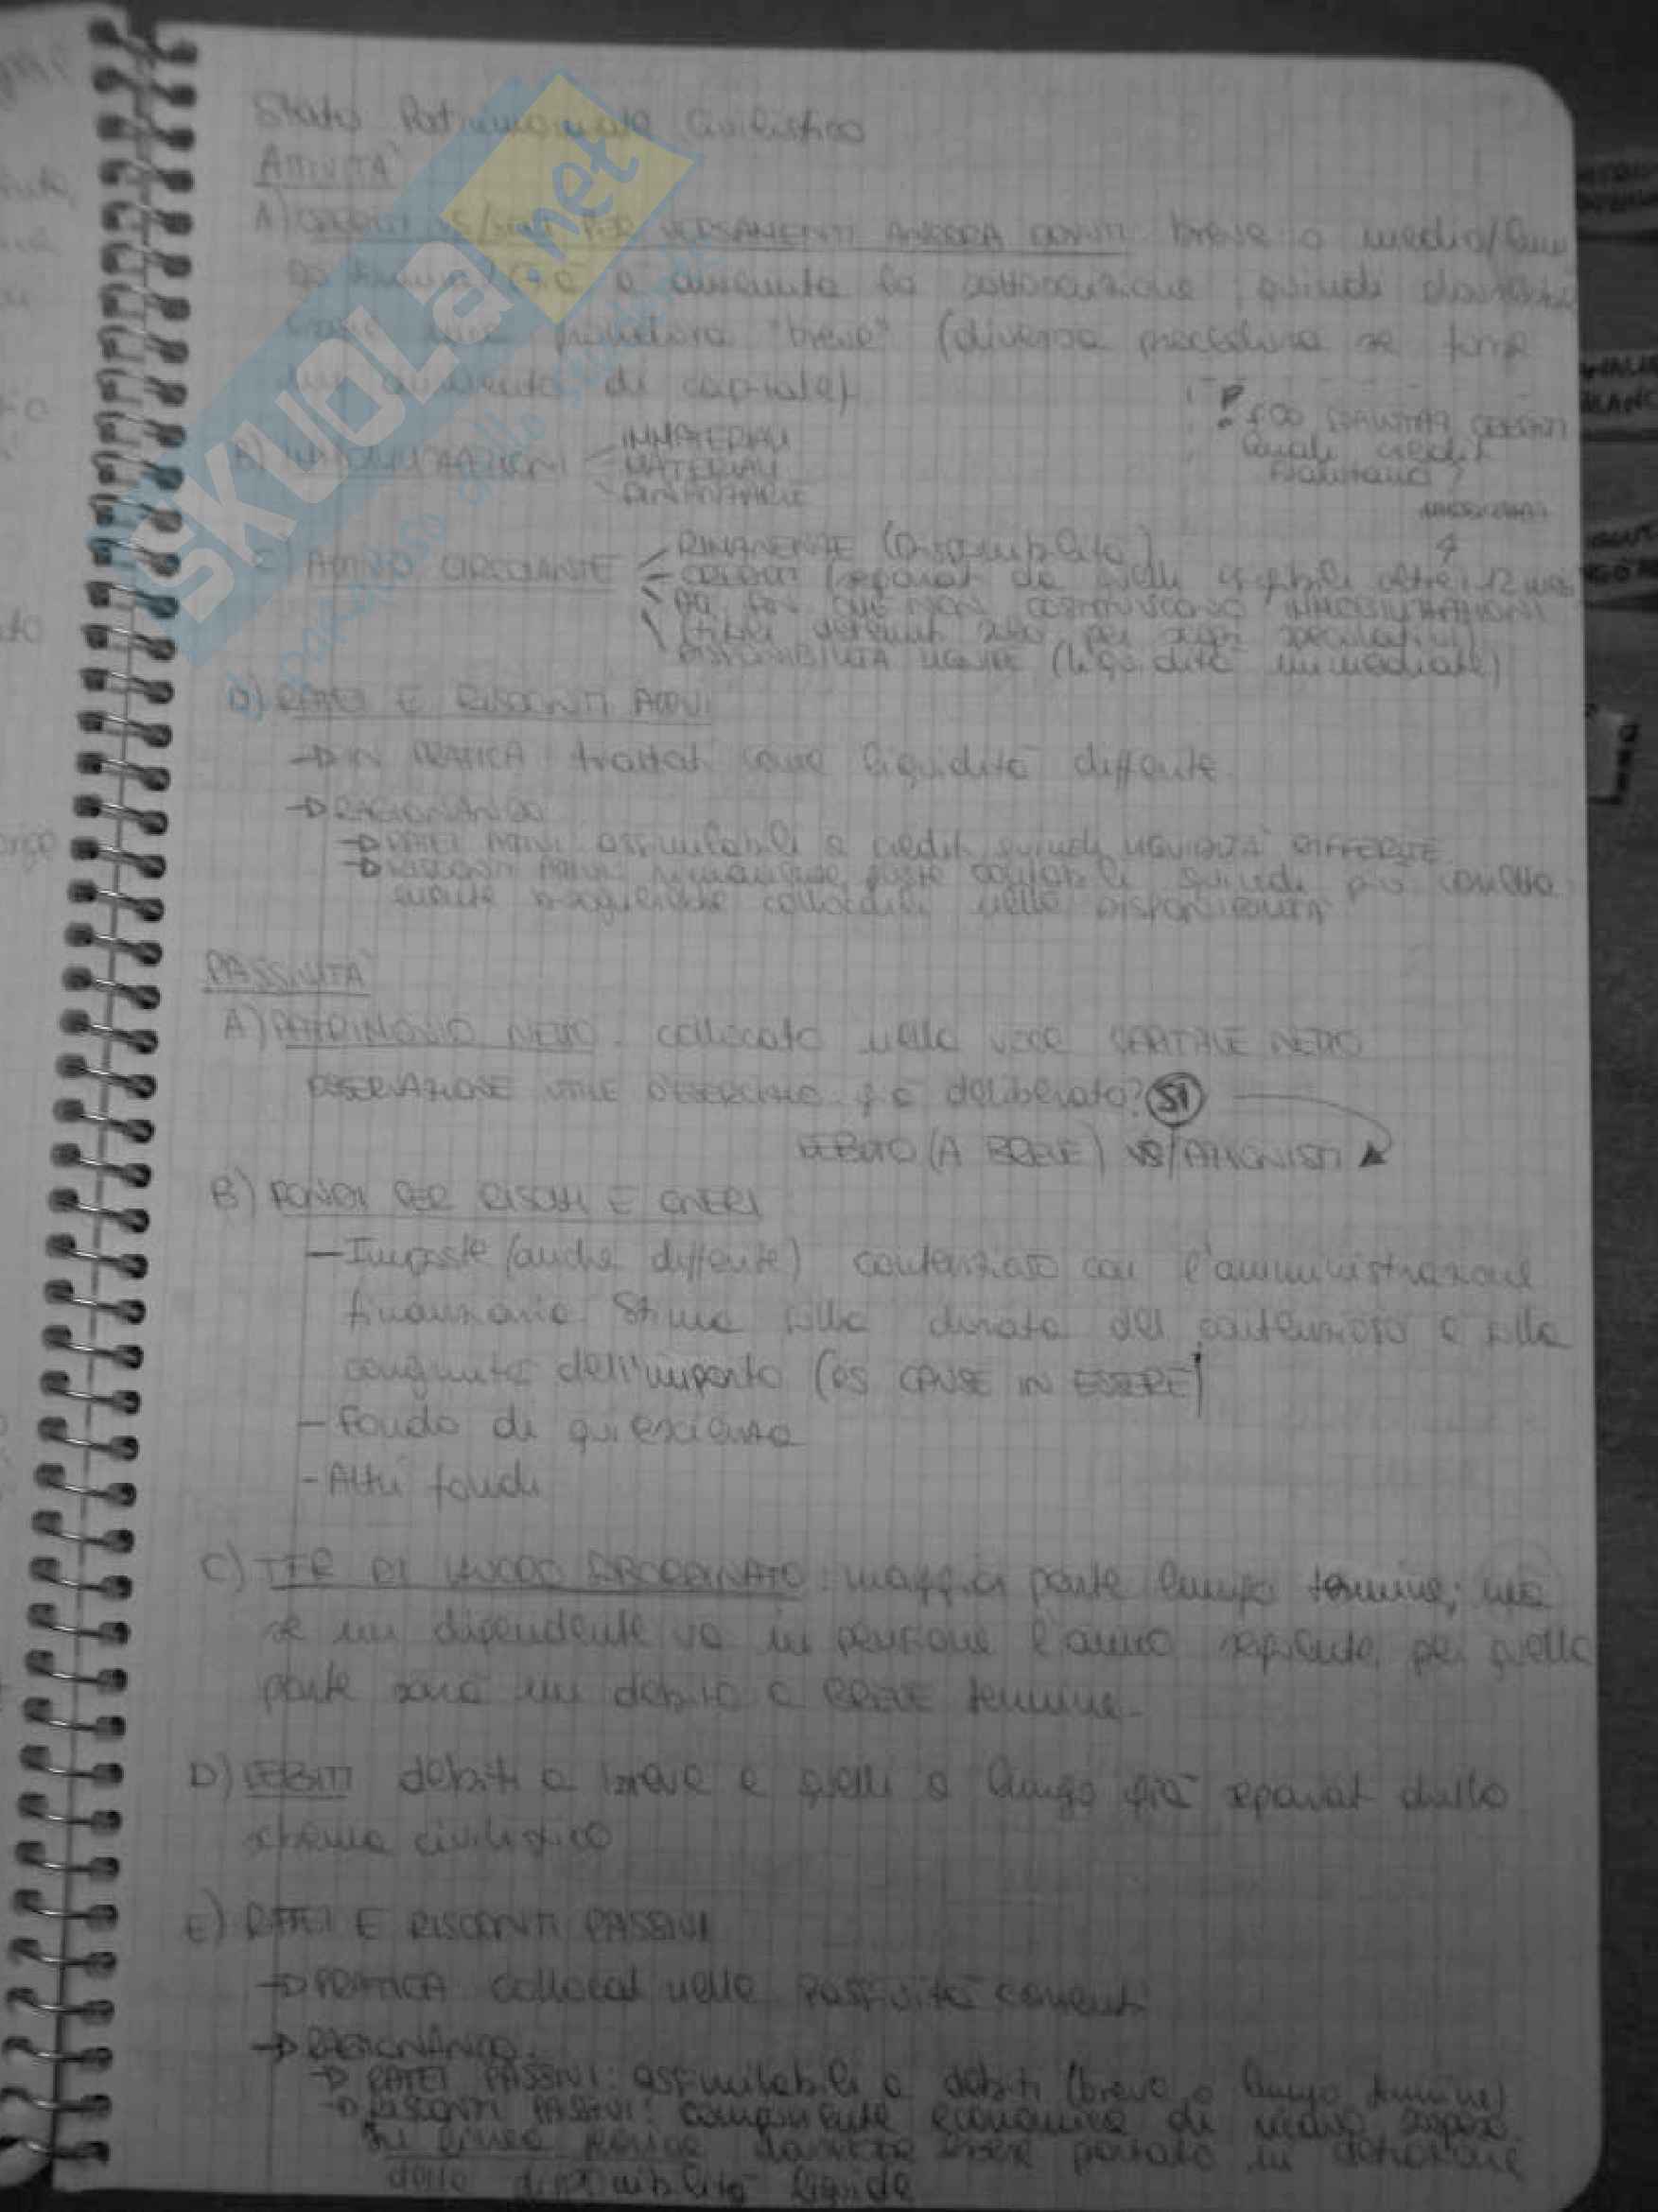 Stato Patrimoniale Civilistico
ATTIVITÀ
A) CREDITI VS/SOCI PER VERSAMENTI ANCORA DOVUTI breve o medio/lun
go termine? è avvenuta la sottoscrizione, quindi
una procedura "breve" (diversa procedura se fosse
un aumento di capitale)
F.DO SVALUTAZ CREDITI
Quali crediti
svalutano?
B) IMMOBILIZZAZIONI
IMMATERIALI
MATERIALI
FINANZIARIE
C) ATTIVO CIRCOLANTE
RIMANENZE (Disponibilità)
CREDITI (separati da quelli esigibili oltre i 12 mesi
ATT. FIN CHE NON COSTITUISCONO IMMOBILIZZAZIONI
(titoli detenuti solo per scopi speculativi)
DISPONIBILITÀ LIQUIDE (liquidità immediate)
D) RATEI E RISCONTI ATTIVI
IN PRATICA trattati come liquidità differite
RAGIONANDO
RATEI ATTIVI assimilabili a crediti quindi LIQUIDITÀ DIFFERITE
RISCONTI ATTIVI: rimanenze poste contabili quindi più corretta
mente bisognerebbe collocarli nelle DISPONIBILITÀ
PASSIVITÀ
A) PATRIMONIO NETTO. collocato nella voce CAPITALE NETTO
OSSERVAZIONE UTILE D'ESERCIZIO è deliberato? SI
DEBITO (A BREVE) VS/AZIONISTI
B) FONDI PER RISCHI E ONERI
- Imposte (anche differite) contenzioso con l'amministrazione
finanziaria. Stima sulla durata del contenzioso e sulla
congruità dell'importo (es CAUSE IN ESSERE)
- Fondo di quiescienza
- Altri fondi
C) TFR DI LAVORO SUBORDINATO maggior parte lungo termine; ma
se un dipendente va in pensione l'anno seguente, per quella
parte sarà un debito a BREVE termine.
D) DEBITI debiti a breve e quelli a lungo già separati dallo
schema civilistico
E) RATEI E RISCONTI PASSIVI
PRATICA collocati nelle Passività correnti
RAGIONANDO.
RATEI PASSIVI: assimilabili a debiti (breve o lungo termine)
RISCONTI PASSIVI: componente economica di
In linea teorica dovrebbe essere portato in detrazione
delle disponibilità liquide
SKUOLa.net
il paradiso dello studente